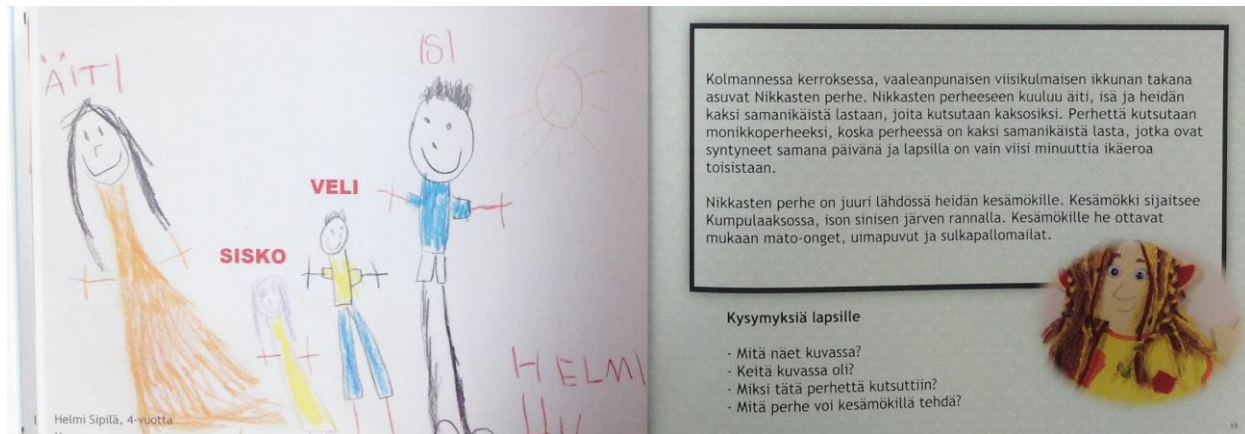 ÄITI
ISI
VELI
SISKO
HELMI
Helmi Sipilä, 4-vuotta
Kolmannessa kerroksessa, vaaleanpunaisen viisikulmaisen ikkunan takana
asuvat Nikkasten perhe. Nikkasten perheeseen kuuluu äiti, isä ja heidän
kaksi samanikäistä lastaan, joita kutsutaan kaksosiksi. Perhettä kutsutaan
monikkoperheeksi, koska perheessä on kaksi samanikäistä lasta, jotka ovat
syntyneet samana päivänä ja lapsilla on vain viisi minuuttia ikäeroa
toisistaan.
Nikkasten perhe on juuri lähdössä heidän kesämökille. Kesämökki sijaitsee
Kumpulaaksossa, ison sinisen järven rannalla. Kesämökille he ottavat
mukaan mato-onget, uimapuvut ja sulkapallomailat.
Kysymyksiä lapsille
- Mitä näet kuvassa?
- Keitä kuvassa oli?
- Miksi tätä perhettä kutsuttiin?
- Mitä perhe voi kesämökillä tehdä?
15